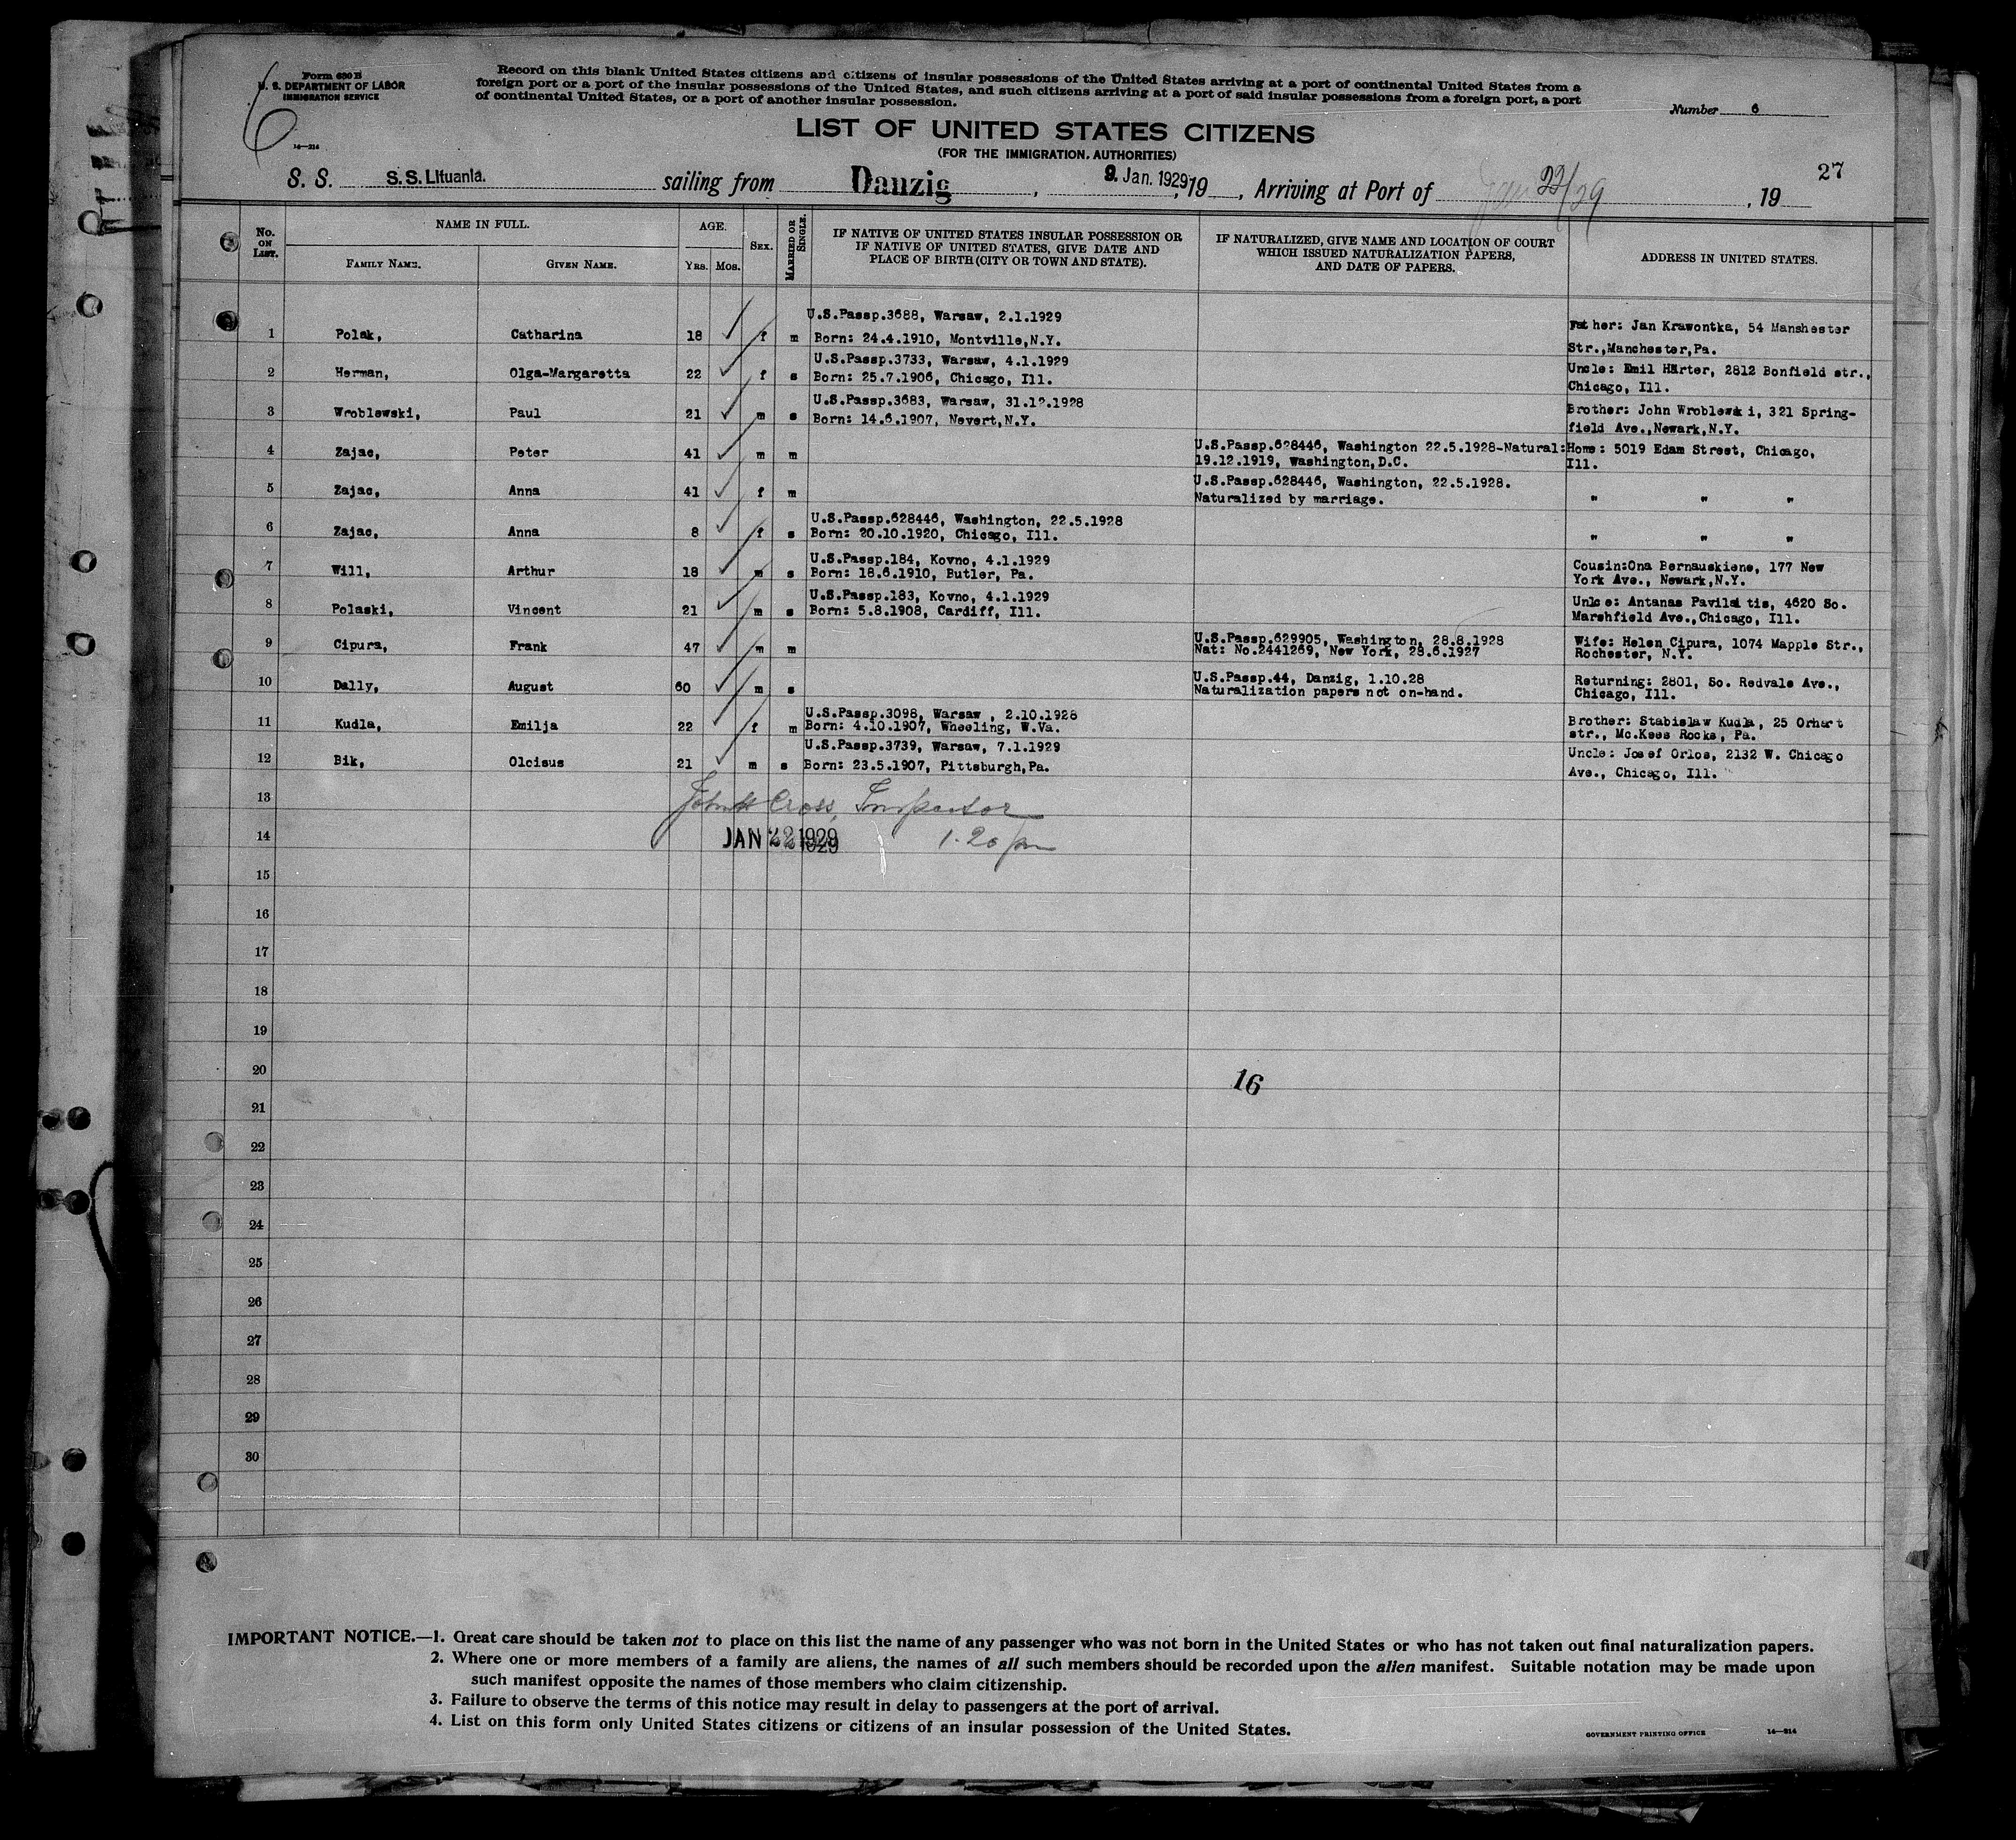 Form 630 B
U. S. DEPARTMENT OF LABOR
IMMIGRATION SERVICE
6
14—214
Record on this blank United States citizens and citizens of insular possessions of the United States arriving at a port of continental United States from a
foreign port or a port of the insular possessions of the United States, and such citizens arriving at a port of said insular possessions from a foreign port, a port
of continental United States, or a port of another insular possession.
Number 6
LIST OF UNITED STATES CITIZENS
(FOR THE IMMIGRATION AUTHORITIES)
27
S. S. S.S. Lituania. sailing from Danzig, 9. Jan. 1929, 19, Arriving at Port of Jan 22/29, 19
No. ON LIST.
NAME IN FULL.
FAMILY NAME. GIVEN NAME.
AGE.
YRS. MOS.
SEX.
MARRIED OR SINGLE.
IF NATIVE OF UNITED STATES INSULAR POSSESSION OR
IF NATIVE OF UNITED STATES, GIVE DATE AND
PLACE OF BIRTH (CITY OR TOWN AND STATE).
IF NATURALIZED, GIVE NAME AND LOCATION OF COURT
WHICH ISSUED NATURALIZATION PAPERS,
AND DATE OF PAPERS.
ADDRESS IN UNITED STATES.
U.S.Passp.3688, Warsaw, 2.1.1929 Father: Jan Krawontka, 54 Manshester
1 Polak, Catharina 18 f m Born: 24.4.1910, Montville,N.Y. Str.,Manchester,Pa.
U.S.Passp.3733, Warsaw, 4.1.1929 Uncle: Emil Härter, 2812 Bonfield str.,
2 Herman, Olga-Margaretta 22 f s Born: 25.7.1906, Chicago, Ill. Chicago, Ill.
U.S.Passp.3683, Warsaw, 31.12.1928 Brother: John Wroblewski, 321 Spring-
3 Wroblewski, Paul 21 m s Born: 14.6.1907, Nevert,N.Y. field Ave.,Newark,N.Y.
U.S.Passp.628446, Washington 22.5.1928-Natural: Home: 5019 Edam Street, Chicago,
4 Zajac, Peter 41 m m 19.12.1919, Washington,D.C. Ill.
U.S.Passp.628446, Washington, 22.5.1928.
5 Zajac, Anna 41 f m Naturalized by marriage. " " "
U.S.Passp.628446, Washington, 22.5.1928
6 Zajac, Anna 8 f s Born: 20.10.1920, Chicago, Ill. " " "
U.S.Passp.184, Kovno, 4.1.1929 Cousin:Ona Bernauskiene, 177 New
7 Will, Arthur 18 m s Born: 18.6.1910, Butler, Pa. York Ave., Newark,N.Y.
U.S.Passp.183, Kovno, 4.1.1929 Unlce: Antanas Pavilaitis, 4620 So.
8 Polaski, Vincent 21 m s Born: 5.8.1908, Cardiff, Ill. Marshfield Ave.,Chicago, Ill.
U.S.Passp.629905, Washington, 28.8.1928 Wife: Helen Cipura, 1074 Mapple Str.,
9 Cipura, Frank 47 m m Nat: No.2441269, New York, 28.6.1927 Rochester, N.Y.
U.S.Passp.44, Danzig, 1.10.28 Returning: 2801, So. Redvale Ave.,
10 Dally, August 60 m s Naturalization papers not on-hand. Chicago, Ill.
U.S.Passp.3098, Warsaw , 2.10.1928 Brother: Stabislaw Kudla, 25 Orhart
11 Kudla, Emilja 22 f m Born: 4.10.1907, Wheeling, W.Va. str., Mc.Kees Rocks, Pa.
U.S.Passp.3739, Warsaw, 7.1.1929 Uncle: Josef Orlos, 2132 W. Chicago
12 Bik, Olcisus 21 m s Born: 23.5.1907, Pittsburgh,Pa. Ave., Chicago, Ill.
13 John H Cross, Inspector
14 JAN 22 1929 1.20 pm
15
16
17
18
19
20 16
21
22
23
24
25
26
27
28
29
30
IMPORTANT NOTICE.—1. Great care should be taken not to place on this list the name of any passenger who was not born in the United States or who has not taken out final naturalization papers.
2. Where one or more members of a family are aliens, the names of all such members should be recorded upon the alien manifest. Suitable notation may be made upon
such manifest opposite the names of those members who claim citizenship.
3. Failure to observe the terms of this notice may result in delay to passengers at the port of arrival.
4. List on this form only United States citizens or citizens of an insular possession of the United States.
GOVERNMENT PRINTING OFFICE 14—214